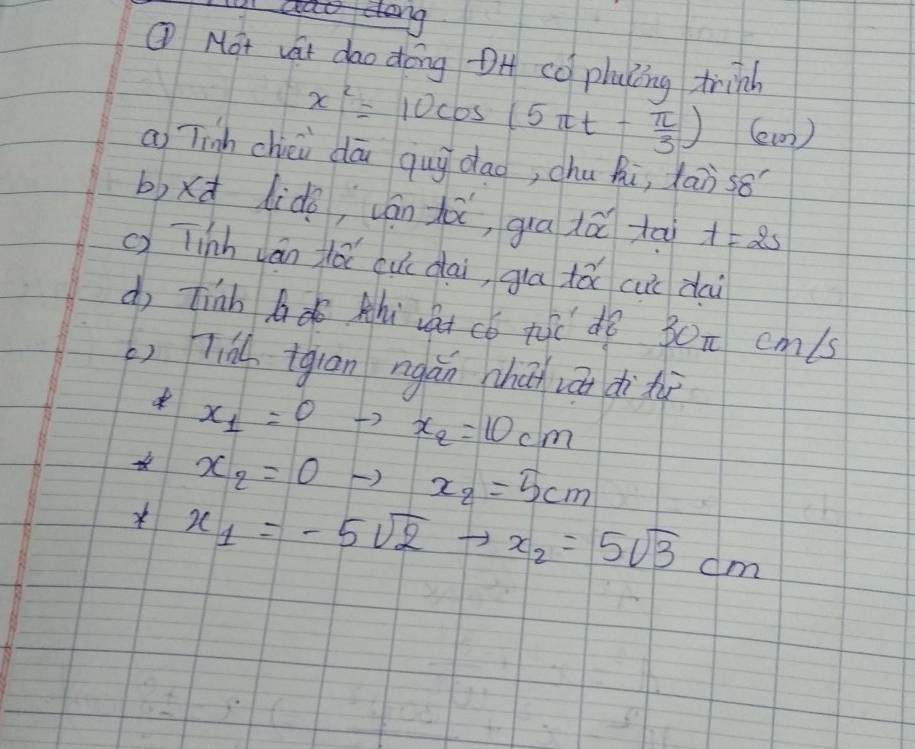 dao động
① Một vật dao động ĐH có phương trình
x² = 10cos (5πt - π/3) (cm)
a) Tính chiều dài quỹ đạo, chu kì, tần số
b) Xđ li độ, vận tốc, gia tốc tại t = 2s
c) Tính vận tốc cực đại, gia tốc cực đại
d) Tính li độ khi vật có tốc độ 30π cm/s
e) Tính tgian ngắn nhất vật đi từ
* x₁ = 0 → x₂ = 10 cm
* x₂ = 0 → x₂ = 5cm
* x₁ = -5√2 → x₂ = 5√3 cm